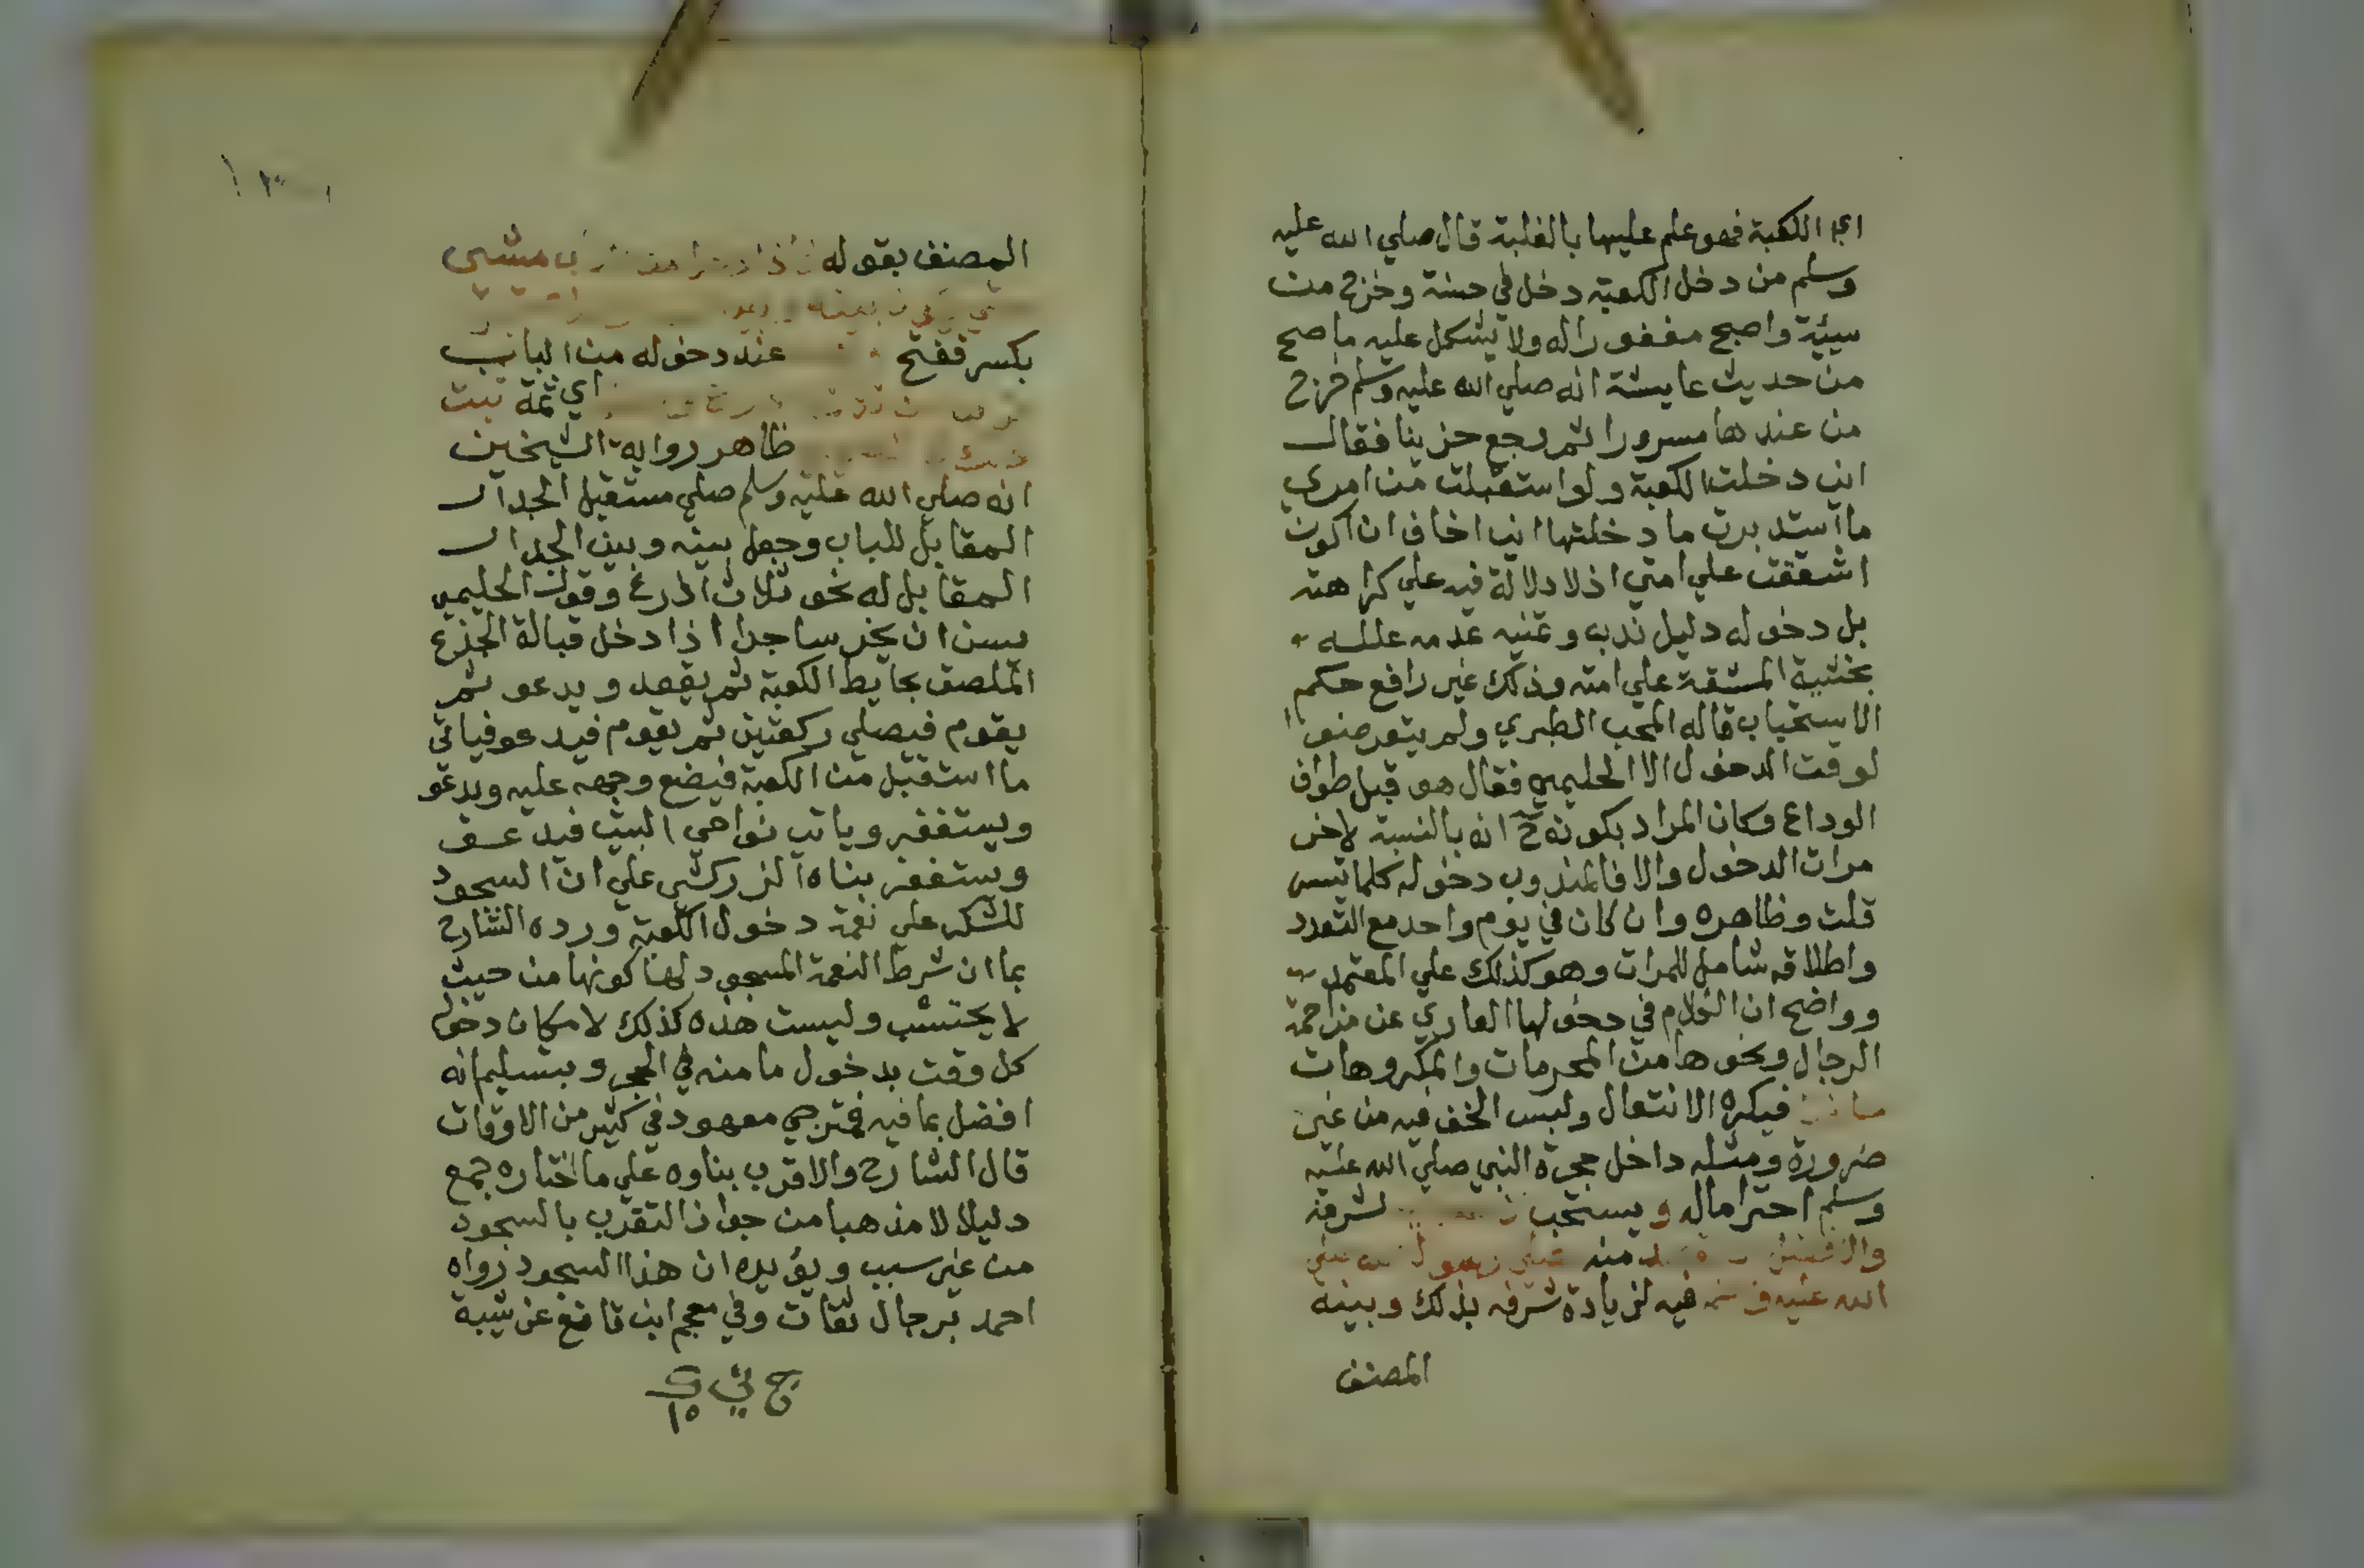 اي الكعبة فهو علم عليها بالغلبة قال صلي الله عليه
وسلم من دخل الكعبة دخل في حسنة وخرج من
سيئة واصبح مغفورا له ولا يشكل عليه ما صح
من حديث عايشة انه صلي الله عليه وسلم خرج
من عندها مسرورا ثم رجع حزينا فقال
اني دخلت الكعبة ولو استقبلت من امري
ما استدبرت ما دخلتها اني اخاف ان اكون
اشققت علي امتي اذ لا دلالة فيه علي كراهته
بل دخوله دليل ندبه وتمنيه عدمه علله
بخشية المشقة علي امته وذلك غير رافع حكم
الاستحباب قاله المحب الطبري ولم يتعرضوا
لوقت الدخول الا الحليمي فقال هو قبل طواف
الوداع وكان المراد بكونه ح انه بالنسبة لاخر
مرات الدخول والا فالمندوب دخوله كلما تيسر
قلت وظاهره وان كان في يوم واحد مع التعدد
واطلاقه شامل للمرات وهو كذلك علي المعتمد
وواضح ان الكلام في دخولها العاري عن مزاحمة
الرجال ونحوها من المحرمات والمكروهات
فيكره الانتعال ولبس الخف فيه من غير
ضرورة ومثله داخل حجرة النبي صلي الله عليه
وسلم احتراما له ويستحب لشرفه
منه
الله عليه فيه لزيادة شرفه بذلك وبينه
المصنف
المصنف بقوله
بكسر ففتح عند دخوله من الباب
اي ثمة
ظاهر رواية الشيخين
انه صلي الله عليه وسلم صلي مستقبل الجدار
المقابل للباب وجعل بينه وبين الجدار
المقابل له نحو ثلاث اذرع وقول الحليمي
يسن ان يخر ساجدا اذا دخل قبالة الجذع
الملصق بحايط الكعبة ثم يقعد ويدعو ثم
يقوم فيصلي ركعتين ثم يقوم فيدعو فياتي
ما استقبل من الكعبة فيضع وجهه عليه ويدعو
ويستغفر وياتي نواحي البيت فيدعو
ويستغفر بناه الزركشي علي ان السجود
للشكر علي نعمة دخول الكعبة ورده الشارح
بما ان شرط النعمة المسجود لها كونها من حيث
لا يحتسب وليست هذه كذلك لامكان دخول
كل وقت بدخول ما منه في الحجر وبتسليم انه
افضل بما فيه فترجي معهود في كثير من الاوقات
قال الشارح والاقرب بناوه علي ما اختاره جمع
دليلا لا مذهبا من جواز التقرب بالسجود
من غير سبب ويؤيده ان هذا السجود رواه
احمد برجال ثقات وفي معجم ابن قانع عن شيبة